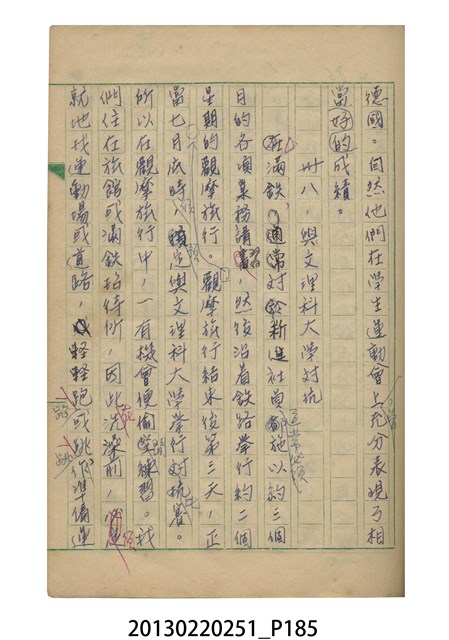 德國。自然他們在學生運動會上充分表現了相
當好的成績。
卅八，與文理科大學對抗
在滿鐵，通常對於新進社員都施以約三個
月的各項業務講習，然後沿着鐵路舉行約二個
星期的觀摩旅行。觀摩旅行結束後第三天，正
當七月底時，須是與文理科大學舉行對抗賽。
所以在觀摩旅行中，一有機會便偷空練習。我
們住在旅館或滿鐵招待所，因此洗澡前，必
就地找運動場或道路，輕輕跑或跳作準備運
20130220251_P185